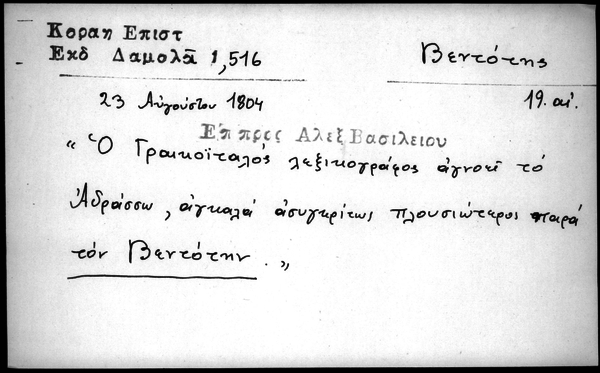 Κοραη Επιστ
Εκδ Δαμαλᾶ 1,516
Βεντότης
23 Αὐγούστου 1804
19. αἰ.
Επ προς Αλεξ Βασιλειου
"Ὁ Γραικοϊταλός λεξικογράφος ἀγνοεῖ τό
Ἀδράσσω, ἀγκαλά ἀσυγκρίτως πλουσιώτερος παρά
τόν Βεντότην."